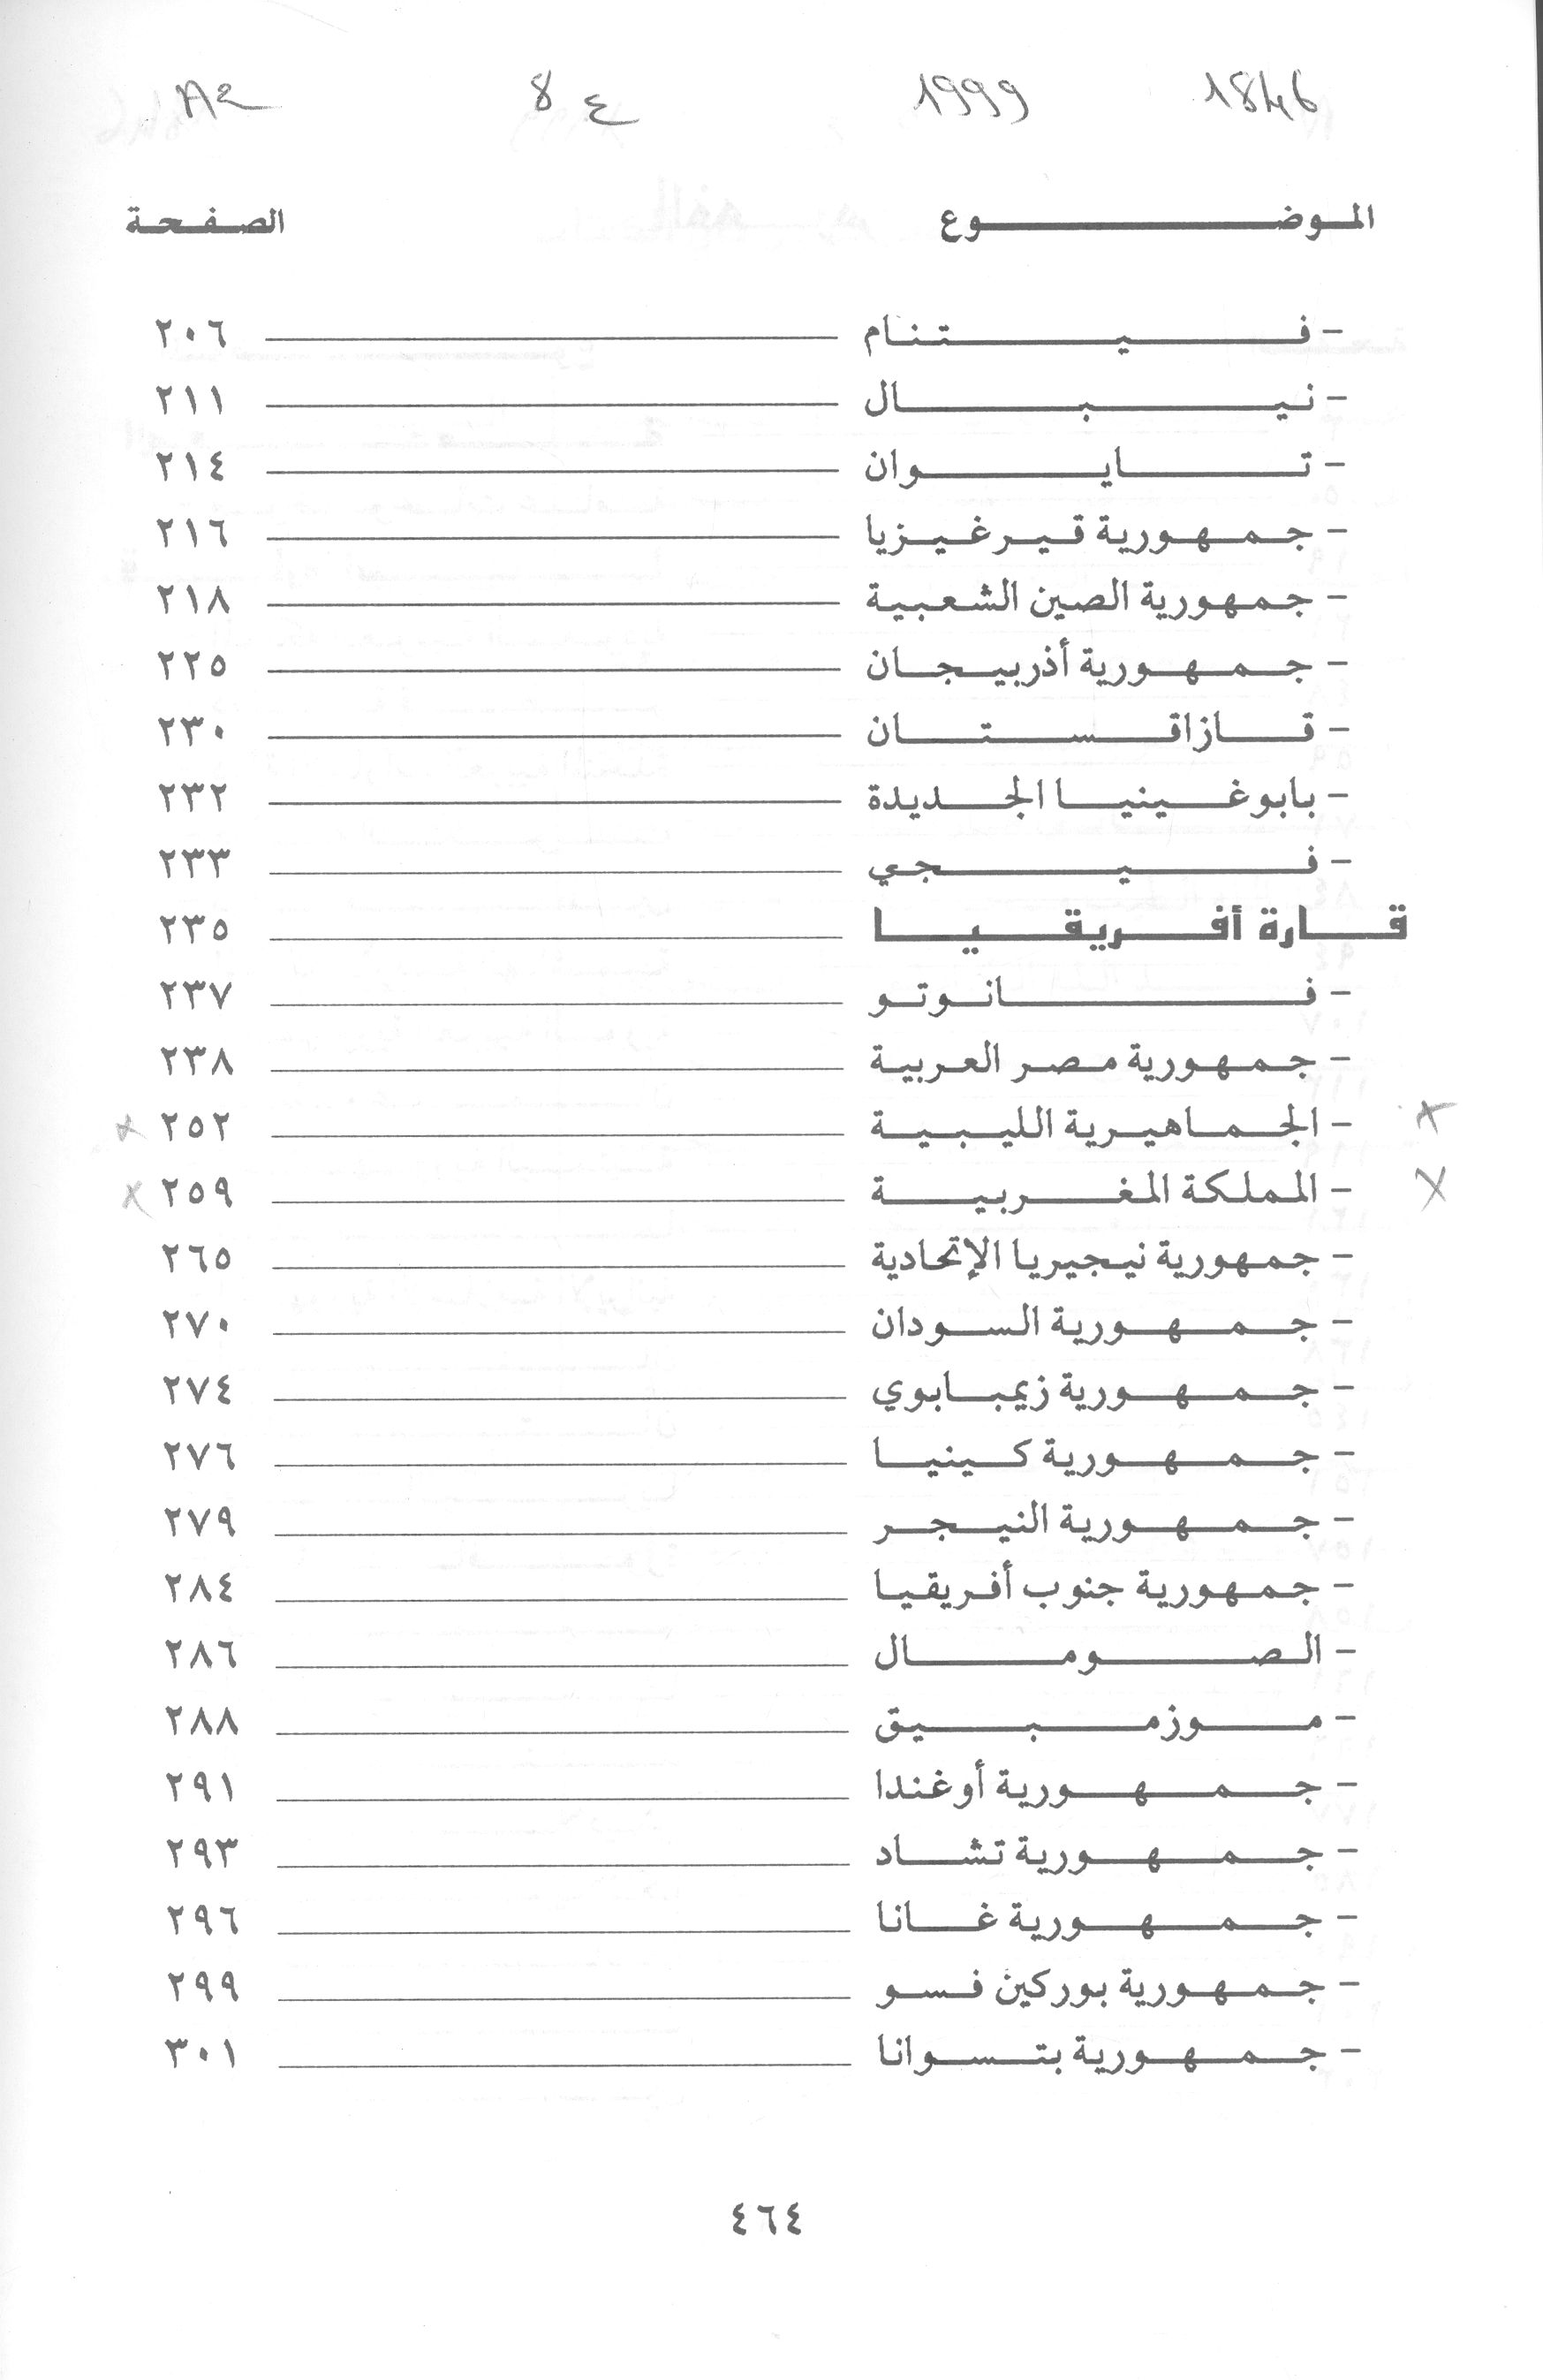 1846 1999 8 ع A2
الموضوع الصفحة
- فيتنام ٢٠٦
- نيبال ٢١١
- تايوان ٢١٤
- جمهورية قيرغيزيا ٢١٦
- جمهورية الصين الشعبية ٢١٨
- جمهورية أذربيجان ٢٢٥
- قازاقستان ٢٣٠
- بابوغينيا الجديدة ٢٣٢
- فيجي ٢٣٣
قارة أفريقيا ٢٣٥
- فانوتو ٢٣٧
- جمهورية مصر العربية ٢٣٨
- الجماهيرية الليبية ٢٥٢
- المملكة المغربية ٢٥٩
- جمهورية نيجيريا الإتحادية ٢٦٥
- جمهورية السودان ٢٧٠
- جمهورية زيمبابوي ٢٧٤
- جمهورية كينيا ٢٧٦
- جمهورية النيجر ٢٧٩
- جمهورية جنوب أفريقيا ٢٨٤
- الصومال ٢٨٦
- موزمبيق ٢٨٨
- جمهورية أوغندا ٢٩١
- جمهورية تشاد ٢٩٣
- جمهورية غانا ٢٩٦
- جمهورية بوركين فسو ٢٩٩
- جمهورية بتسوانا ٣٠١
٤٦٤